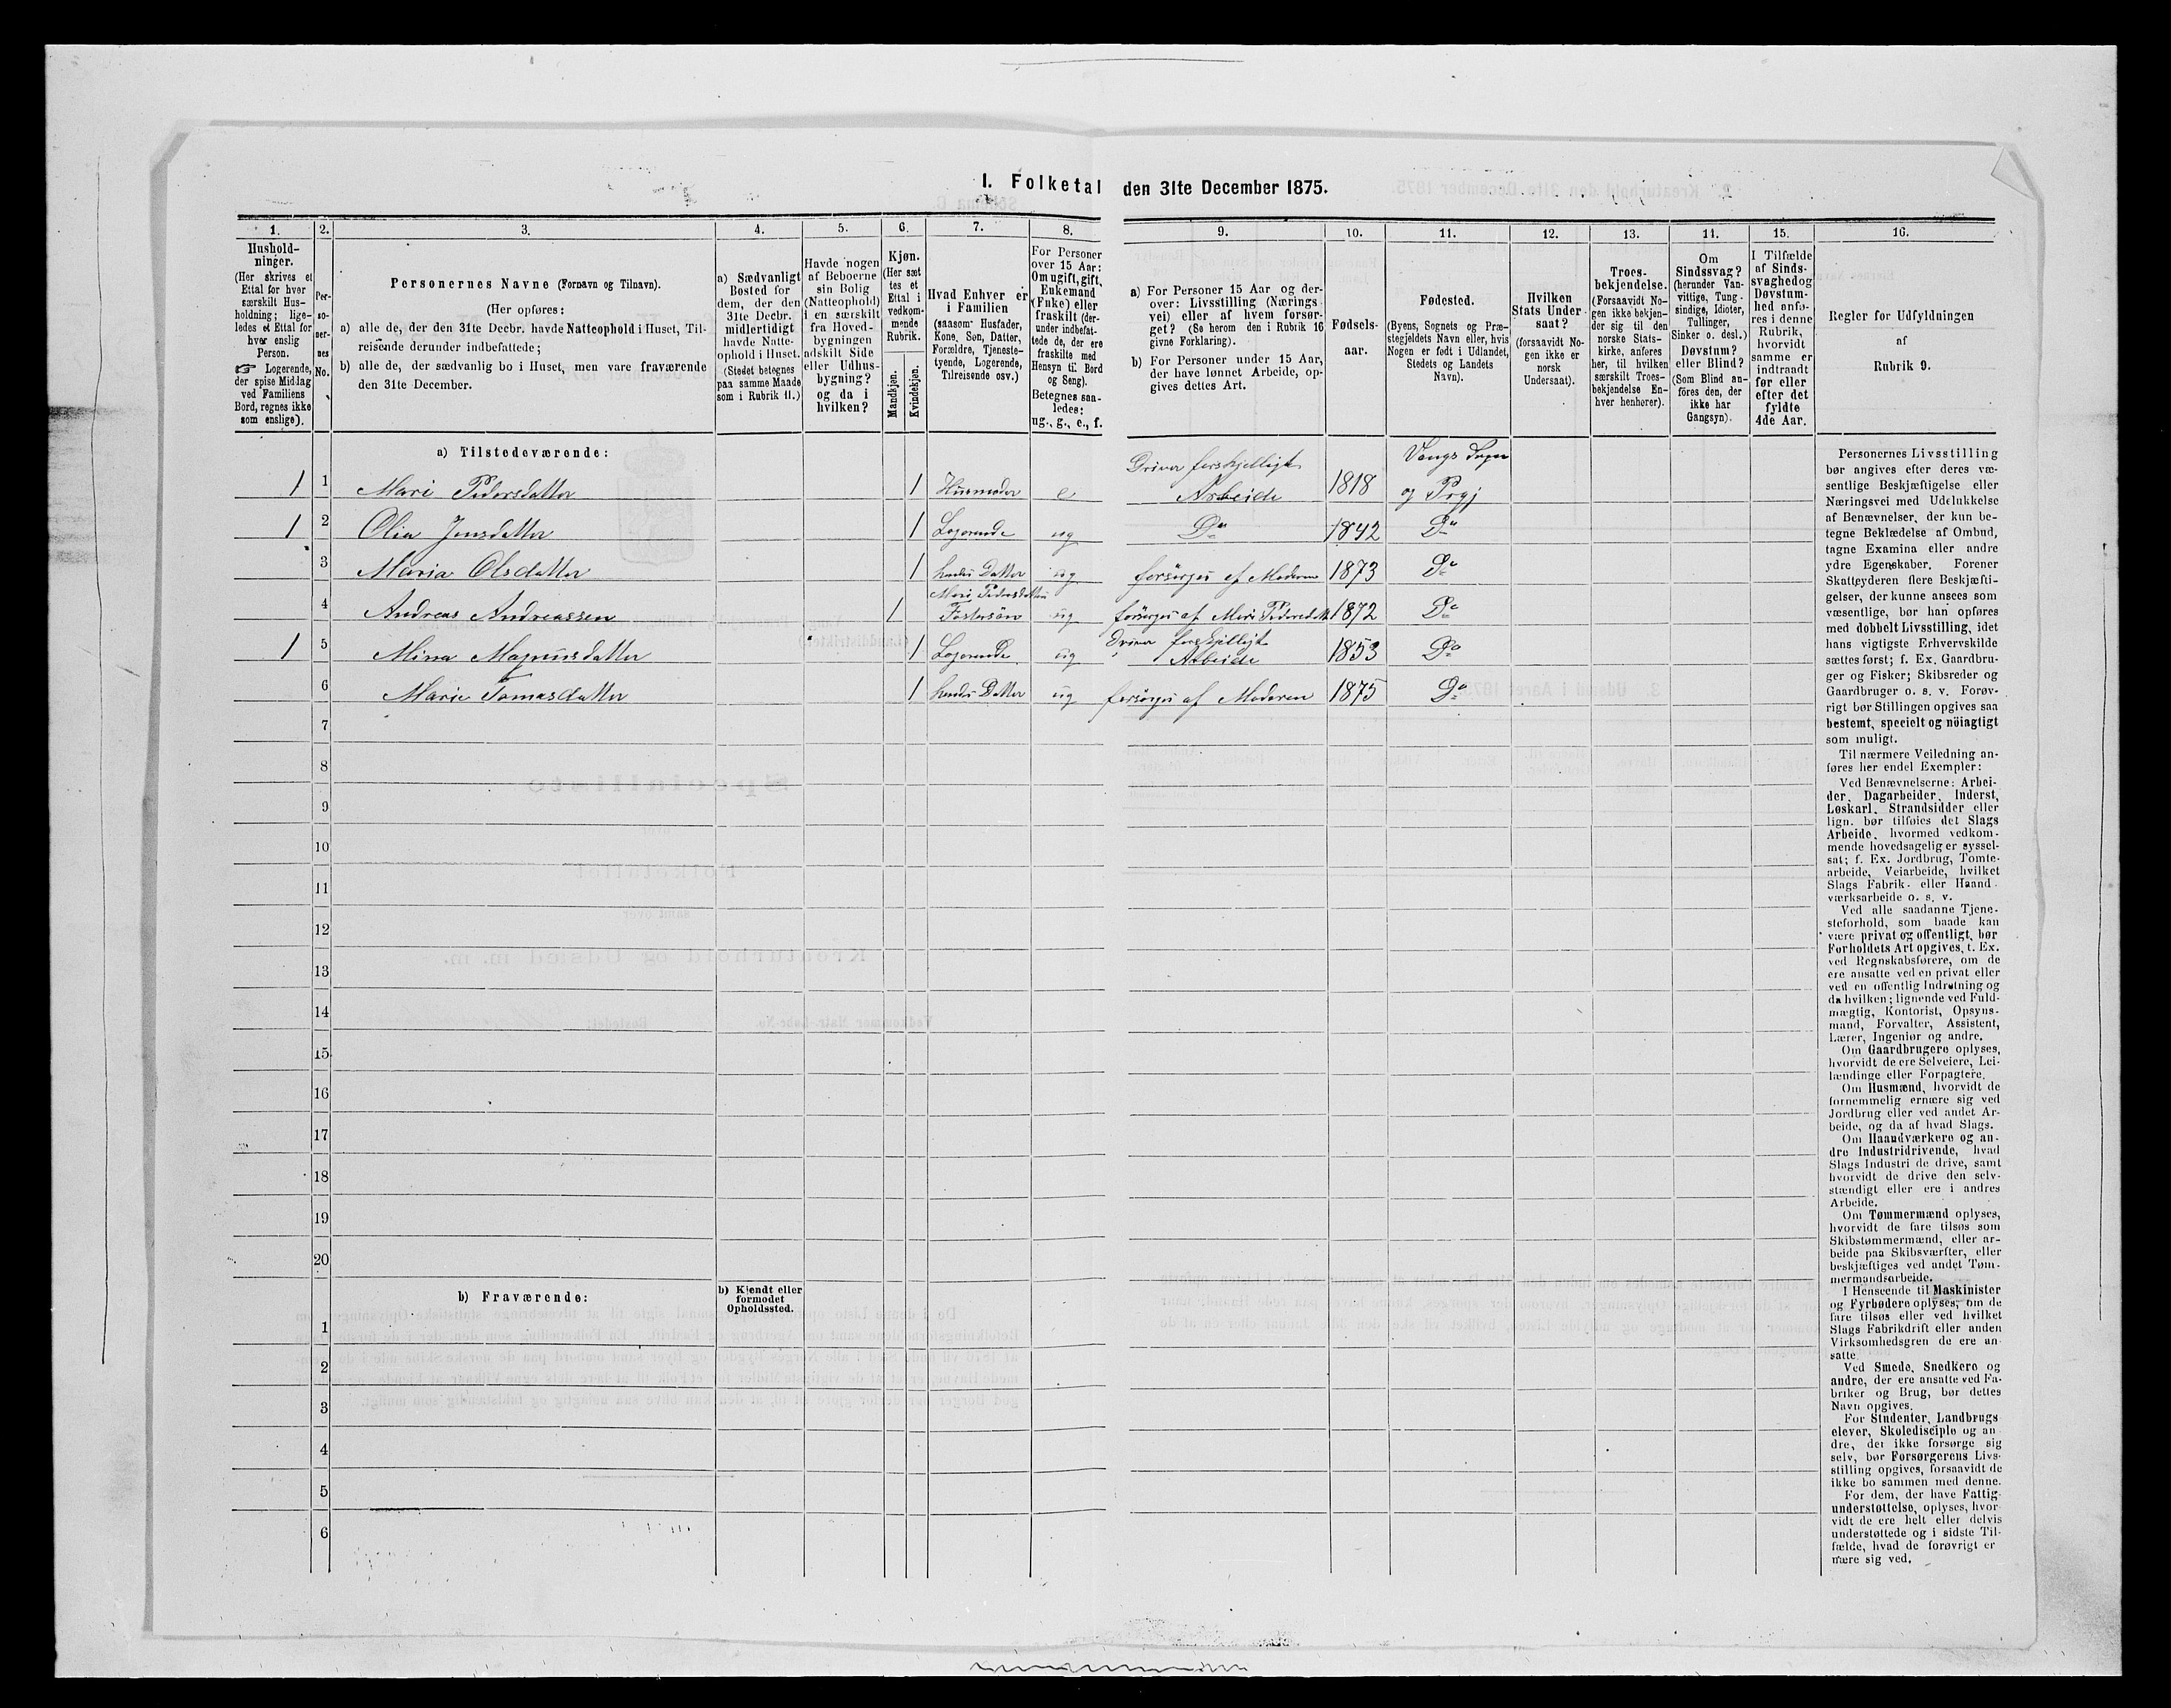 I. Folketal den 31te December 1875.
1.
Hushold-
ninger.
(Her skrives et
Ettal for hver
særskilt Hus-
holdning; lige-
ledes et Ettal for
hver enslig
Person.
☞ Logerende,
der spise Middag
ved Familiens
Bord, regnes ikke
som enslige).
2.
Per-
so-
ner-
nes
No.
3.
Personernes Navne (Fornavn og Tilnavn).
(Her opføres:
a) alle de, der den 31te Decbr. havde Natteophold i Huset, Til-
reisende derunder indbefattede;
b) alle de, der sædvanlig bo i Huset, men vare fraværende
den 31te December.
4.
a) Sædvanligt
Bosted for
dem, der den
31te Decbr.
midlertidigt
havde Natte-
ophold i Huset.
(Stedet betegnes
paa samme Maade
som i Rubrik 11.)
5.
Havde nogen
af Beboerne
sin Bolig
(Natteophold)
i en særskilt
fra Hoved-
bygningen
adskilt Side
eller Udhus-
bygning?
og da i
hvilken?
6.
Kjøn.
(Her sæt
tes et
Ettal i
vedkom-
mende
Rubrik.
Mandkjøn.
Kvindekjøn.
7.
Hvad Enhver er
i Familien
(saasom Husfader,
Kone, Søn, Datter,
Forældre, Tjeneste-
tyende, Logerende,
Tilreisende osv.)
8.
For Personer
over 15 Aar:
Om ugift, gift,
Enkemand
(Enke) eller
fraskilt (der-
under indbefat-
tede de, der ere
fraskilte med
Hensyn til Bord
og Seng).
Betegnes saa-
ledes:
ug., g., e., f.
9.
a) For Personer 15 Aar og der-
over: Livsstilling (Nærings-
vei) eller af hvem forsør-
get? (Se herom den i Rubrik 16
givne Forklaring).
b) For Personer under 15 Aar,
der have lønnet Arbeide, op-
gives dettes Art.
10.
Fødsels-
aar.
11.
Fødested.
(Byens, Sognets og Præ-
stegjeldets Navn eller, hvis
Nogen er født i Udlandet,
Stedets og Landets
Navn).
12.
Hvilken
Stats Under-
saat?
(forsaavidt No-
gen ikke er
norsk
Undersaat).
13.
Troes-
bekjendelse.
(Forsaavidt No-
gen ikke bekjen-
der sig til den
norske Stats-
kirke, anføres
her, til hvilken
særskilt Troes-
bekjendelse En-
hver henhører).
14.
Om
Sindssvag?
(herunder Van-
vittige, Tung-
sindige, Idioter,
Tullinger,
Sinker o. desl.)
Døvstum?
eller Blind?
(Som Blind an-
föres den, der
ikke har
Gangsyn).
15.
I Tilfælde
af Sinds-
svaghed og
Døvstum-
hed anfø-
res i denne
Rubrik,
hvorvidt
samme er
indtraadt
før eller
efter det
fyldte
4de Aar.
16.
Regler for Udfyldningen
af
Rubrik 9.
a) Tilstedeværende:
1 1 Mari Pedersdatter 1 Husmoder e Driver forskjelligt Arbeide 1818 Vangs Sogn og Prgj
1 2 Olia Jensdatter 1 Logerende ug Do 1842 Do
3 Maria Olsdatter 1 hendes Datter ug forsörges af Moderen 1873 Do
4 Andreas Andreassen 1 Mari Pedersdatters Fostersön ug forsörges af Mari Pedersdatt 1872 Do
1 5 Mina Magnusdatter 1 Logerende ug Driver forskjelligt Arbeide 1853 Do
6 Marie Tomasdatter 1 hendes Datter ug forsörges af Moderen 1875 Do
7
8
9
10
11
12
13
14
15
16
17
18
19
20
b) Fraværende:
b) Kjendt eller
formodet
Opholdssted.
1
2
3
4
5
6
Personernes Livsstilling
bør angives efter deres væ-
sentlige Beskjæftigelse eller
Næringsvei med Udelukkelse
af Benævnelser, der kun be-
tegne Beklædelse af Ombud,
tagne Examina eller andre
ydre Egenskaber. Forener
Skatteyderen flere Beskjæfti-
gelser, der kunne ansees som
væsentlige, bør han opføres
med dobbelt Livsstilling, idet
hans vigtigste Erhvervskilde
sættes først; f. Ex. Gaardbru-
ger og Fisker; Skibsreder og
Gaardbruger o. s. v. Forøv-
rigt bør Stillingen opgives saa
bestemt, specielt og nöiagtigt
som muligt.
Til nærmere Veiledning an-
føres her endel Exempler:
Ved Benævnelserne: Arbei-
der, Dagarbeider, Inderst,
Løskarl, Strandsidder eller
lign. bør tilføies det Slags
Arbeide, hvormed vedkom-
mende hovedsagelig er syssel-
sat; f. Ex. Jordbrug, Tomte-
arbeide, Veiarbeide, hvilket
Slags Fabrik- eller Haand-
værksarbeide o. s. v.
Ved alle saadanne Tjene-
steforhold, som baade kan
være privat og offentligt, bør
Forholdets Art opgives, t. Ex.
ved Regnskabsførere, om de
ere ansatte ved en privat eller
ved en offentlig Indretning og
da hvilken; lignende ved Fuld-
mægtig, Kontorist, Opsyns-
mand, Forvalter, Assistent,
Lærer, Ingeniør og andre.
Om Gaardbrugere oplyses,
hvorvidt de ere Selveiere, Lei-
lændinge eller Forpagtere.
Om Husmænd, hvorvidt de
fornemmelig ernære sig ved
Jordbrug eller ved andet Ar-
beide, og da af hvad Slags.
Om Haandværkere og an-
dre Industridrivende, hvad
Slags Industri de drive, samt
hvorvidt de drive den selv-
stændigt eller ere i andres
Arbeide.
Om Tømmermænd oplyses,
hvorvidt de fare tilsøs som
Skibstømmermænd, eller ar-
beide paa Skibsværfter, eller
beskjæftiges ved andet Tøm-
mermandsarbeide.
I Henseende til Maskinister
og Fyrbødere oplyses, om de
fare tilsøs eller ved hvilket
Slags Fabrikdrift eller anden
Virksomhedsgren de ere an-
satte.
Ved Smede, Snedkere og
andre, der ere ansatte ved Fa-
briker og Brug, bør dettes
Navn opgives.
For Studenter, Landbrugs
elever, Skoledisciple og an
dre, der ikke forsørge sig
selv, bør Forsørgerens Livs-
stilling opgives, forsaavidt de
ikke bo sammen med denne.
For dem, der have Fattig-
understøttelse, oplyses, hvor-
vidt de ere helt eller delvis
understøttede og i sidste Til-
fælde, hvad de forøvrigt er
nære sig ved.